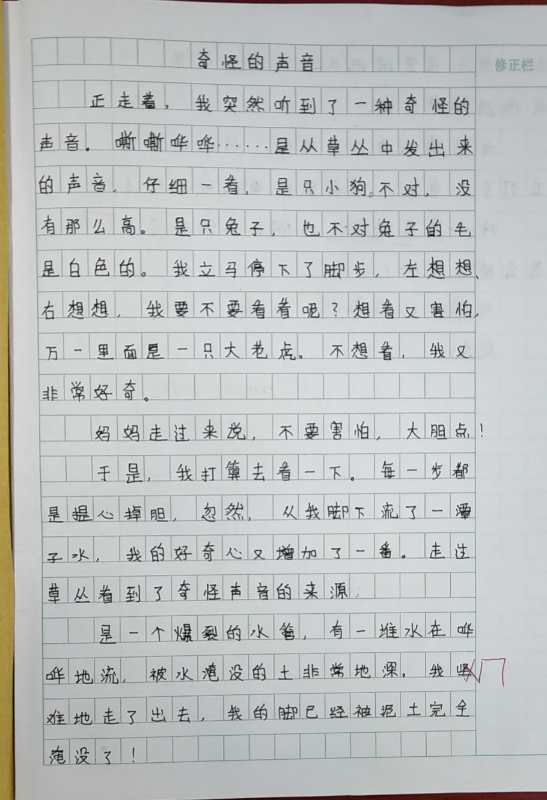 修正栏
奇怪的声音
正走着，我突然听到了一种奇怪的
声音。嘶嘶哗哗……是从草丛中发出来
的声音，仔细一看，是只小狗。不对，没
有那么高。是只兔子，也不对兔子的毛
是白色的。我立马停下了脚步，左想想、
右想想，我要不要看看呢？想看又害怕，
万一里面是一只大老虎。不想看，我又
非常好奇。
妈妈走过来说，不要害怕，大胆点！
于是，我打算去看一下。每一步都
是提心掉胆，忽然，从我脚下流了一潭
子水，我的好奇心又增加了一番。走过
草丛看到了奇怪声音的来源，
是一个爆裂的水管，有一堆水在哗
哗地流，被水淹没的土非常地深，我
难地走了出去，我的脚已经被泥土完全
淹没了！